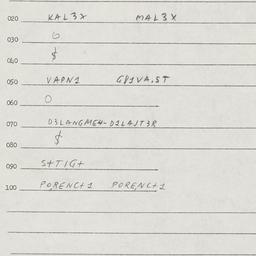 020 KAL3X MAL3X
030 6
040 $
050 VAPN1 G81VA,ST
060 0
070 D3LANGMEH-D1LAJT3R
080 $
090 S+TIG+
100 PORENC+1 PORENC+1